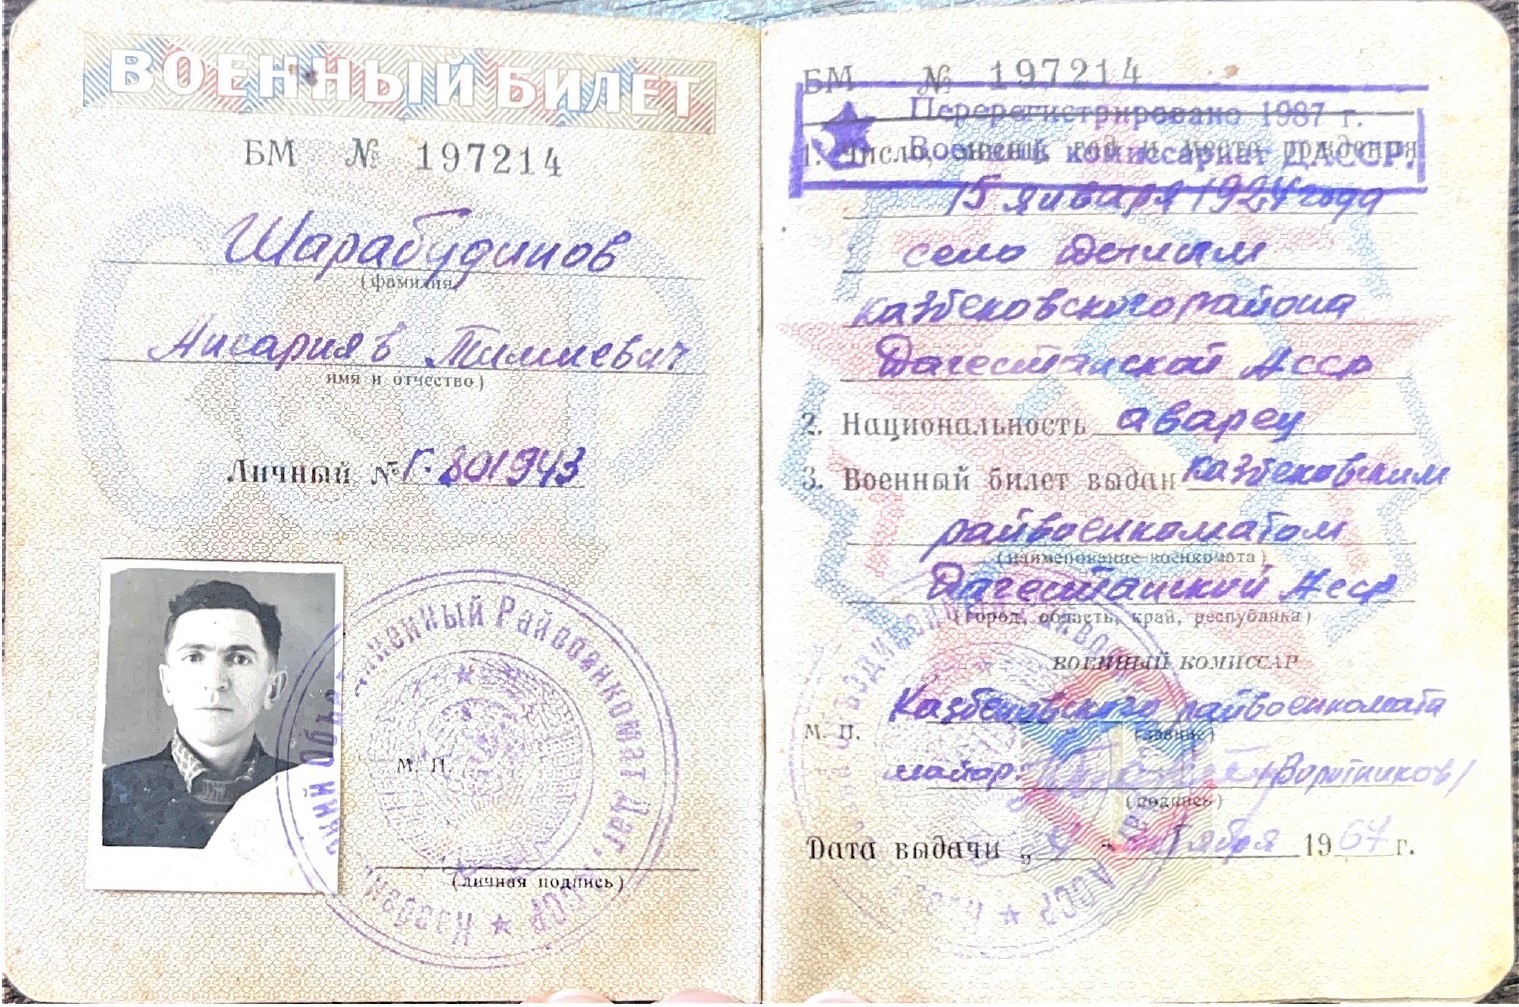 ВОЕННЫЙ БИЛЕТ
БМ № 197214
Шарабудинов
(фамилия)
Ансарияв Тимиевич
имя и отчество)
Личный № Г-801943
Объединенный Райвоенкомат Даг. АССР
М. П.
(личная подпись)
БМ № 197214
Перерегистрировано 1987 г.
Военный комиссариат ДАССР.
1. Число, месяц, год и место рождения
15 января 1924 года
село Дылым
Казбековского района
Дагестанской Асср
2. Национальность аварец
3. Военный билет выдан Казбековским
райвоенкоматом
(наименование военкомата)
Дагестанской Асср
(город, область, край, республика)
ВОЕННЫЙ КОМИССАР
Казбековского райвоенкомата
М. П. (звание)
майор: /Воротников/
(подпись)
Дата выдачи „ 1967 г.